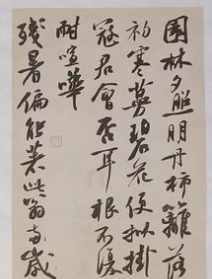 園林夕照明丹柿籬落
初寒蔓碧花便擬掛
冠君會否耳根不復
耐喧嘩
殘暑偏能著此翁高歲